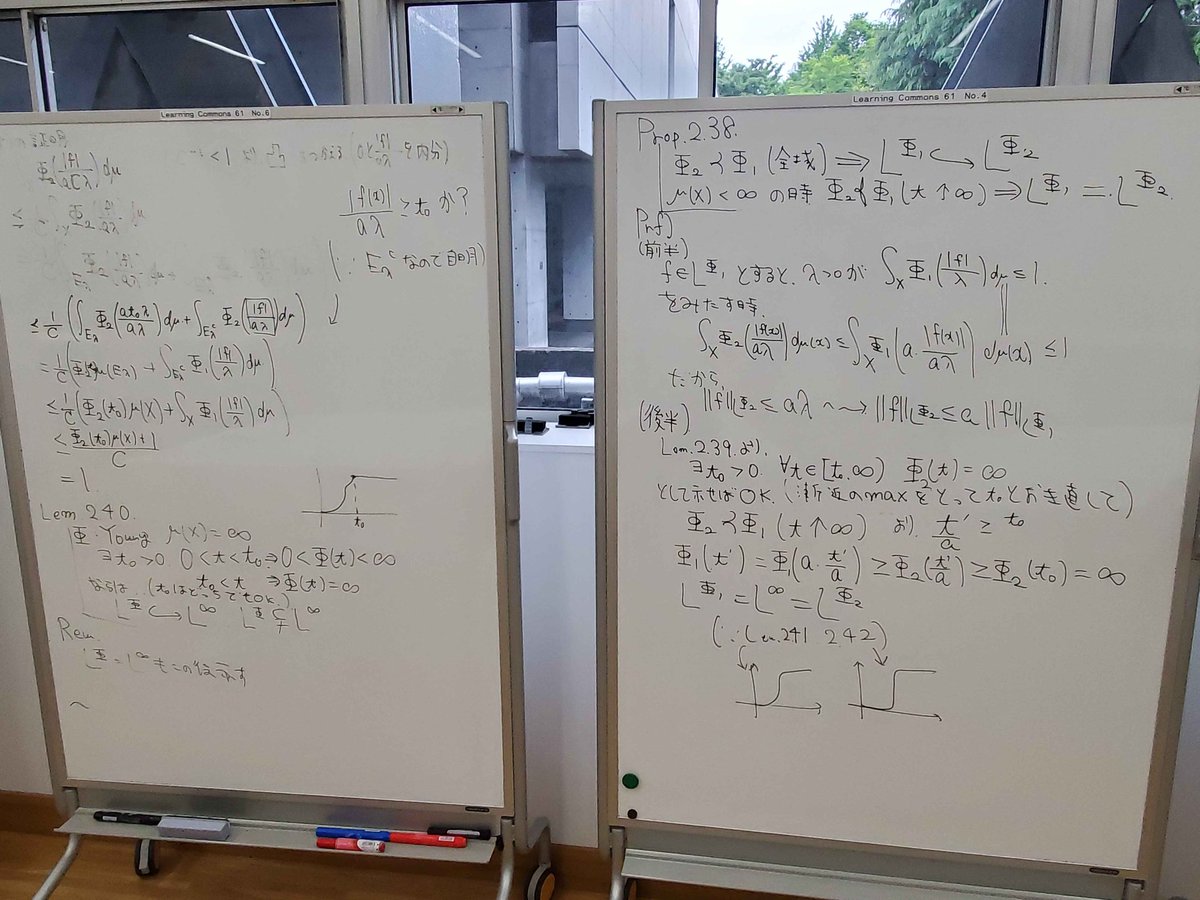 Learning Commons 61 No.6
Φ₂(|f|/aCλ)dμ
|f(x)|/aλ ≥ t₀ か?
(∵ E_λ^c なので自明)
≤ 1/C (∫_{E_λ} Φ₂(at₀λ/aλ) dμ + ∫_{E_λ^c} Φ₂(|f|/aλ) dμ)
= 1/C (Φ₂ μ(E_λ) + ∫_{E_λ^c} Φ₁(|f|/λ) dμ)
≤ 1/C (Φ₂(t₀) μ(X) + ∫_X Φ₁(|f|/λ) dμ)
≤ Φ₂(t₀)μ(X)+1/C
= 1.
t₀
Lem 2.40.
Φ: Young μ(X) = ∞
∃t₀>0. 0<t<t₀ ⇒ 0<Φ(t)<∞
t₀<t ⇒ Φ(t)=∞
ならば (t₀はどっちでもOK.)
L^Φ ↪ L^∞ L^Φ ⊊ L^∞
Rem.
L^Φ = L^∞ もこの後示す
〜
Learning Commons 61 No.4
Prop.2.38.
Φ₂ ≺ Φ₁ (全域) ⇒ L^Φ₁ ↪ L^Φ₂
μ(X) < ∞ の時 Φ₂ ≺ Φ₁ (t↑∞) ⇒ L^Φ₁ = L^Φ₂.
Prf)
(前半)
f∈L^Φ₁ とすると、λ>0が ∫_X Φ₁(|f|/λ) dμ ≤ 1.
をみたす時.
∫_X Φ₂(|f(x)|/aλ) dμ(x) ≤ ∫_X Φ₁(a・|f(x)|/aλ) dμ(x) ≤ 1
だから、
‖f‖_{L^Φ₂} ≤ aλ ⤳ ‖f‖_{L^Φ₂} ≤ a ‖f‖_{L^Φ₁}
(後半)
Lem.2.39.より.
∃t₀>0. ∀t∈[t₀.∞) Φ₂(t) = ∞
として示せばOK. (漸近のmaxをとってt₀とおき直して)
Φ₂ ≺ Φ₁ (t↑∞) より. t'/a ≥ t₀
Φ₁(t') = Φ₁(a・t'/a) ≥ Φ₂(t'/a) ≥ Φ₂(t₀) = ∞
L^Φ₁ = L^∞ = L^Φ₂
(∵ Lem.241 2.42)